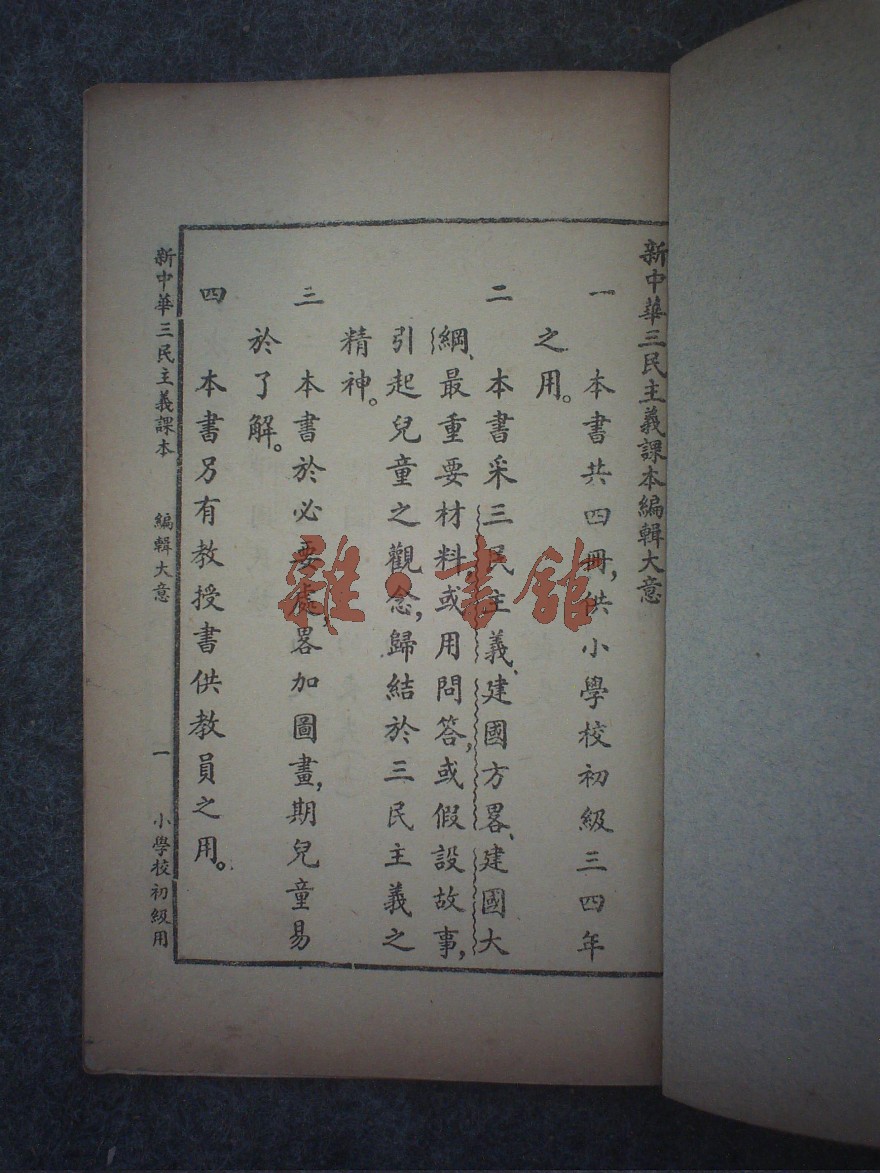 新中華三民主義課本編輯大意
一　本書共四冊，供小學校初級三四年
之用。
二　本書采三民主義、建國方畧、建國大
綱、最重要材料，或用問答，或假設故事，
引起兒童之觀念，歸結於三民主義之
精神。
三　本書於必要處，畧加圖畫，期兒童易
於了解。
四　本書另有教授書供教員之用。
新中華三民主義課本　編輯大意　一　小學校初級用
雜·書館